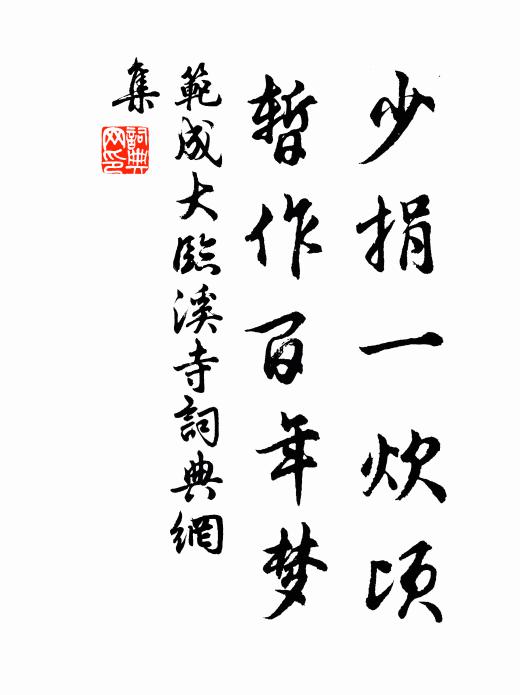 少捐一炊頃
暫作百年梦
範成大臨溪寺詞典網
集
詞典网印